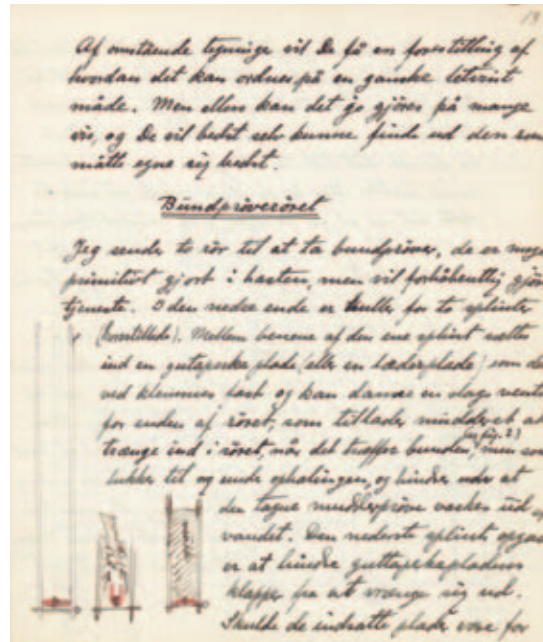 19
Af omstående tegninge vil De få en forestilling af
hvordan det kan ordnes på en ganske letvint
måde. Men ellers kan det jo gjöres på mange
vis, og De vil bedst selv kunne finde ud den som
måtte egne sig bedst.
Bundpröveröret
Jeg sender to rör til at ta bundpröver, de er meget
primitivt gjort i hasten, men vil forhåbentlig gjöre
tjeneste. I den nedre ende er huller for to splinter
(korstillede). Mellem benene af den ene splint sættes
ind en gutaperka plade (eller en læderplade) som der
ved klemmes fast og kan danne en slags ventil
for enden af röret, som tillader mudderet at
(se fig. 2)
trænge ind i röret, når det træffer bunden, men som
lukker til og under ophalingen, og hindrer at
den tagne mudderpröve vaskes ud af
vandet. Den nederste splints opgave
er at hindre guttaperkapladens
klapper fra at vrænge sig ud.
Skulde de indsatte plader være for